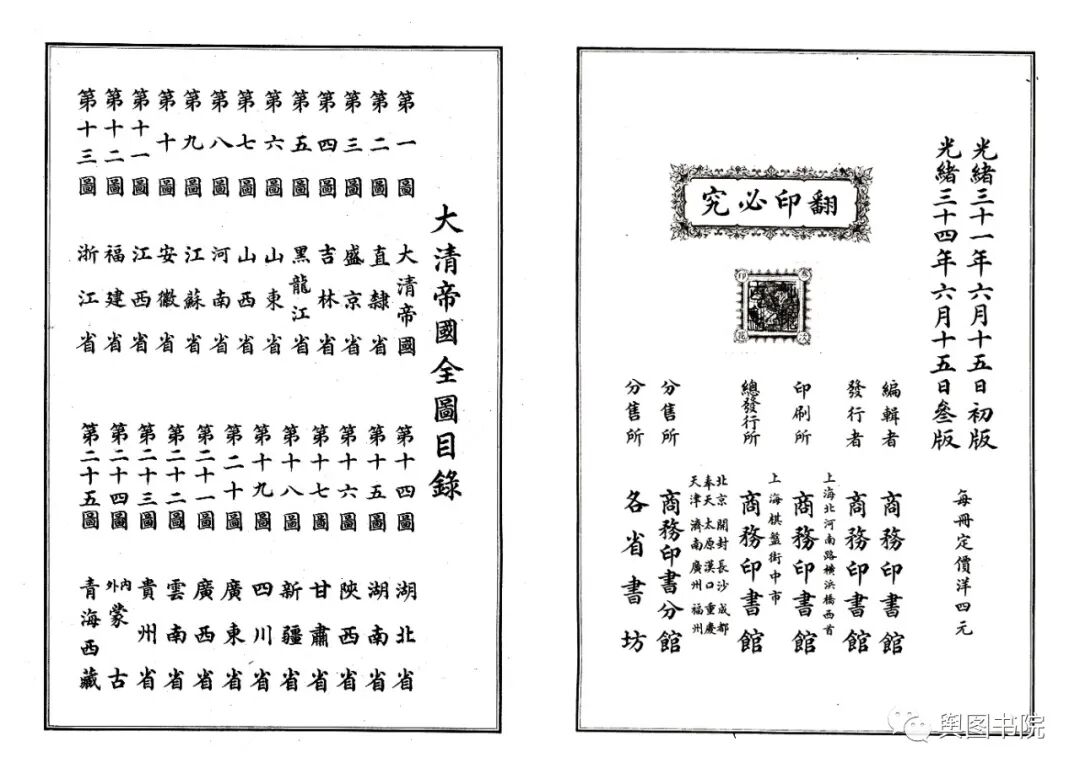 光緒三十一年六月十五日初版
光緒三十四年六月十五日叄版
每冊定價洋四元
翻印必究
編輯者 商務印書館
發行者 商務印書館
上海北河南路橫浜橋西首
印刷所 商務印書館
上海棋盤街中市
總發行所 商務印書館
北京 開封 長沙 成都
奉天 太原 漢口 重慶
天津 濟南 廣州 福州
分售所 商務印書分館
分售所 各省書坊
大清帝國全圖目錄
第一圖 大清帝國
第二圖 直隸省
第三圖 盛京省
第四圖 吉林省
第五圖 黑龍江省
第六圖 山東省
第七圖 山西省
第八圖 河南省
第九圖 江蘇省
第十圖 安徽省
第十一圖 江西省
第十二圖 福建省
第十三圖 浙江省
第十四圖 湖北省
第十五圖 湖南省
第十六圖 陝西省
第十七圖 甘肅省
第十八圖 新疆省
第十九圖 四川省
第二十圖 廣東省
第二十一圖 廣西省
第二十二圖 雲南省
第二十三圖 貴州省
第二十四圖 內外蒙古
第二十五圖 青海西藏
舆图书院